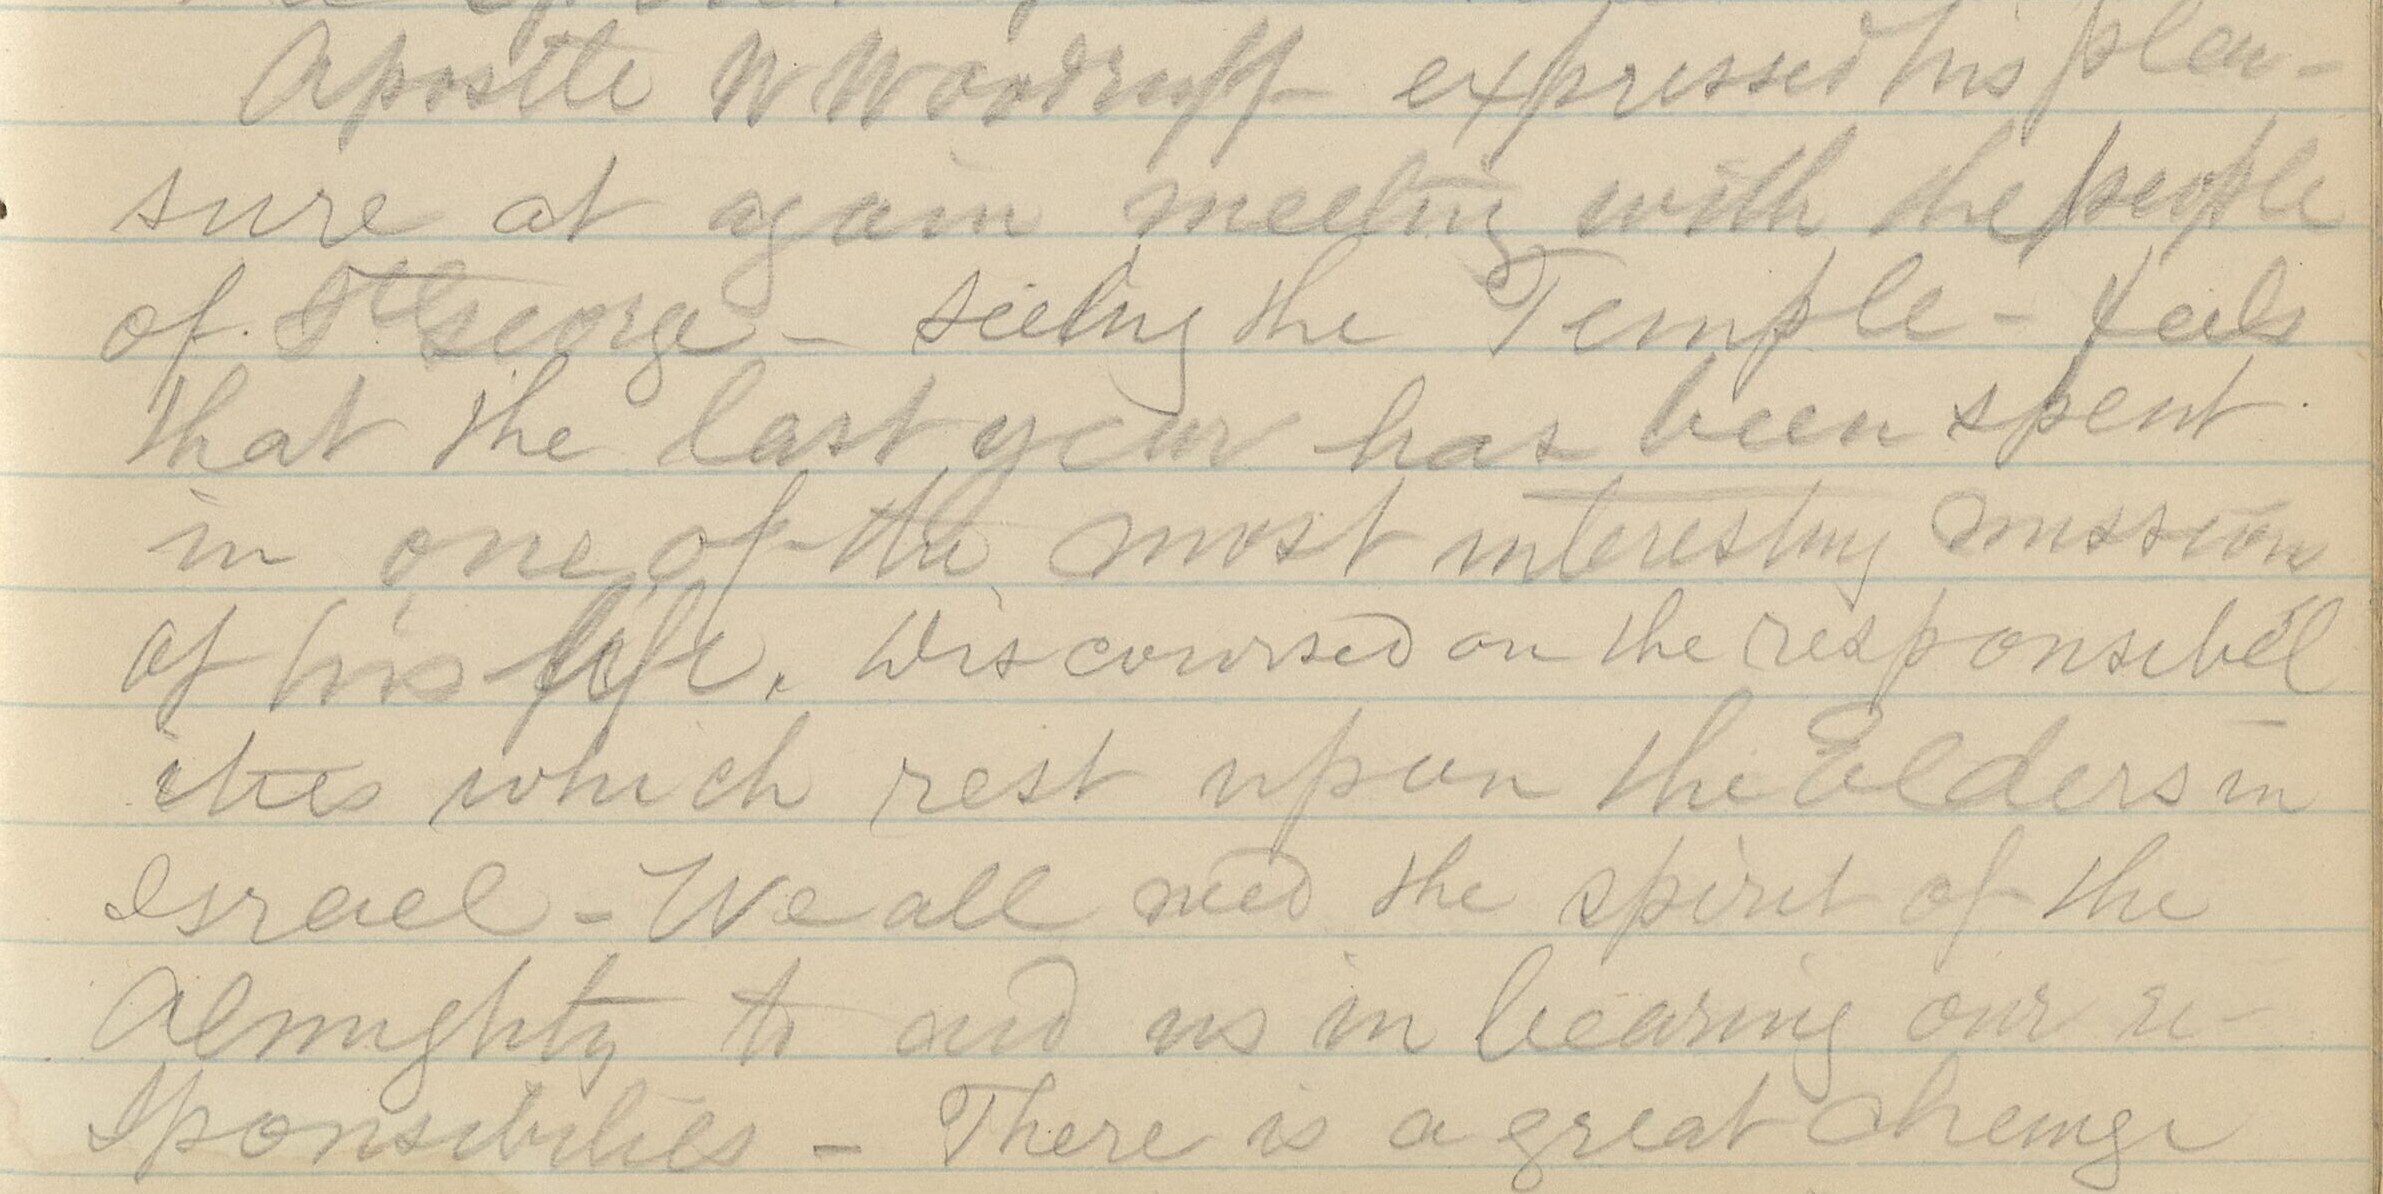 Apostle W Woodruff expressed his plea-
sure at again meeting with the people
of St George - seeing the Temple - feels
that the last year has been spent
in one of the most interesting mission
of his life. Discoursed on the responsibil
ities which rest upon the Elders in
Israel - We all need the spirit of the
Almighty to aid us in bearing our re-
sponsibilities - There is a great change